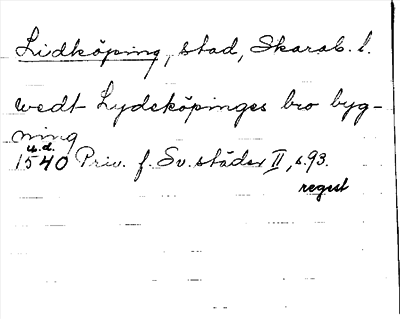 Lidköping, stad, Skarab. l.
wedt Lydeköpinges bro byg-
ning
u.d.
1540 Priv. f. Sv. städer II, s. 93.
regest